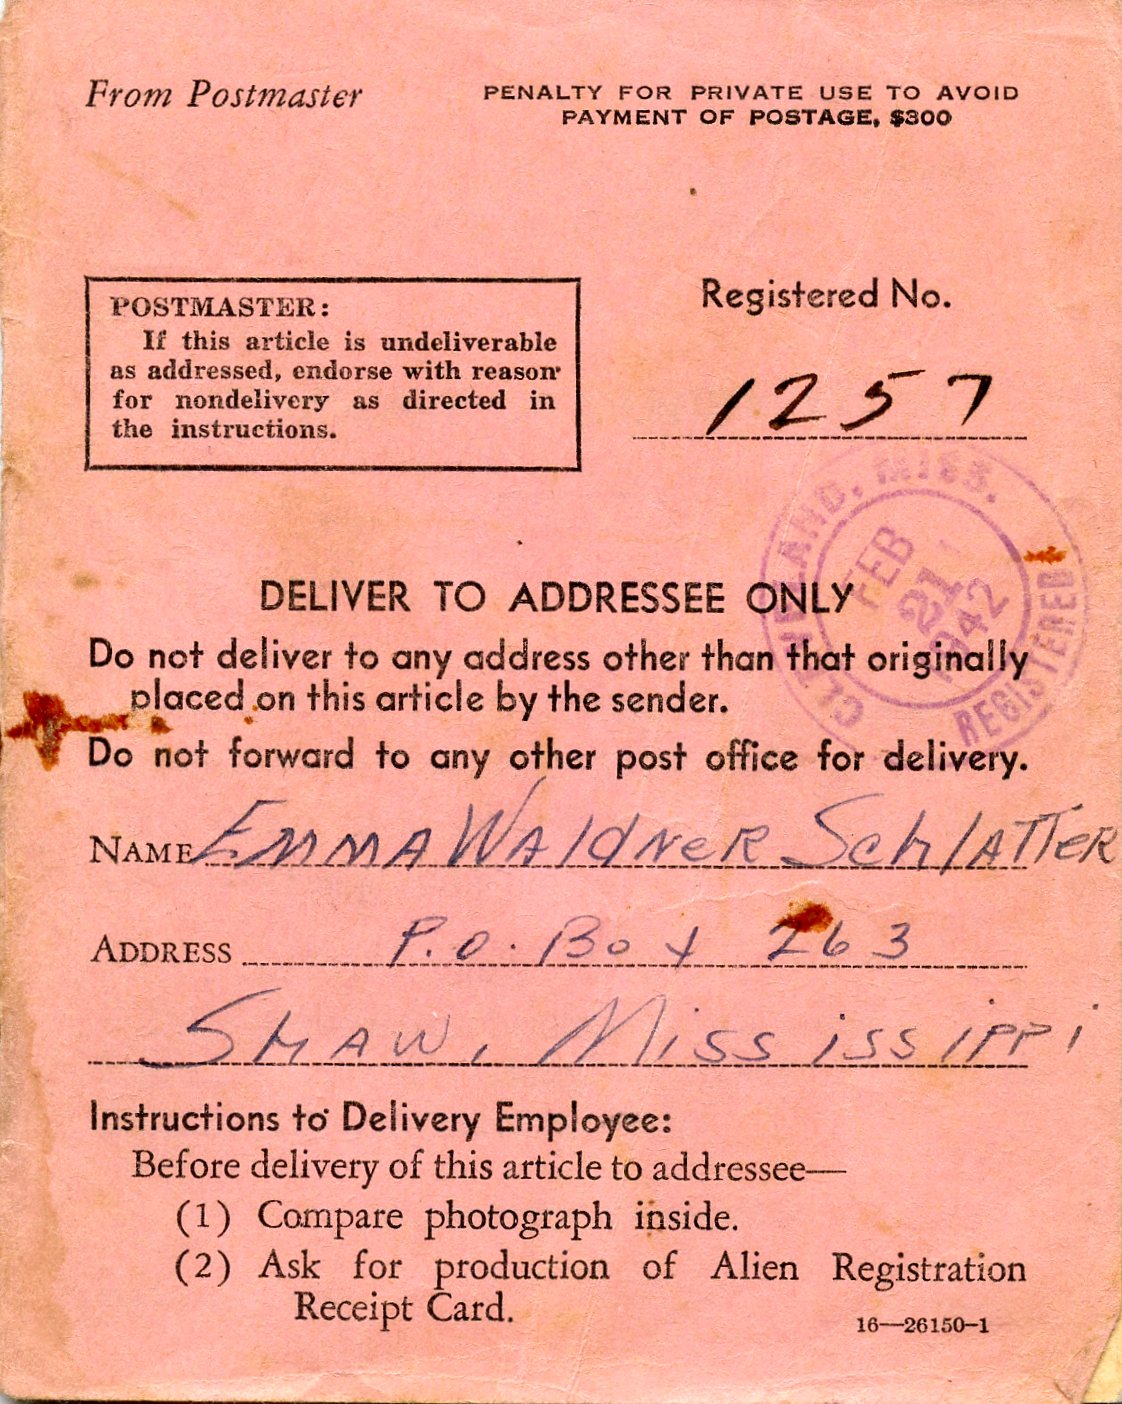 From Postmaster
PENALTY FOR PRIVATE USE TO AVOID
PAYMENT OF POSTAGE, $300
POSTMASTER:
If this article is undeliverable
as addressed, endorse with reason
for nondelivery as directed in
the instructions.
Registered No.
1257
CLEVELAND, MISS.
FEB
21
1942
REGISTERED
DELIVER TO ADDRESSEE ONLY
Do not deliver to any address other than that originally
placed on this article by the sender.
Do not forward to any other post office for delivery.
NAME Emma Waldner Schlatter
ADDRESS P.O. Box 263
Shaw, Mississippi
Instructions to Delivery Employee:
Before delivery of this article to addressee—
(1) Compare photograph inside.
(2) Ask for production of Alien Registration
Receipt Card.
16—26150-1